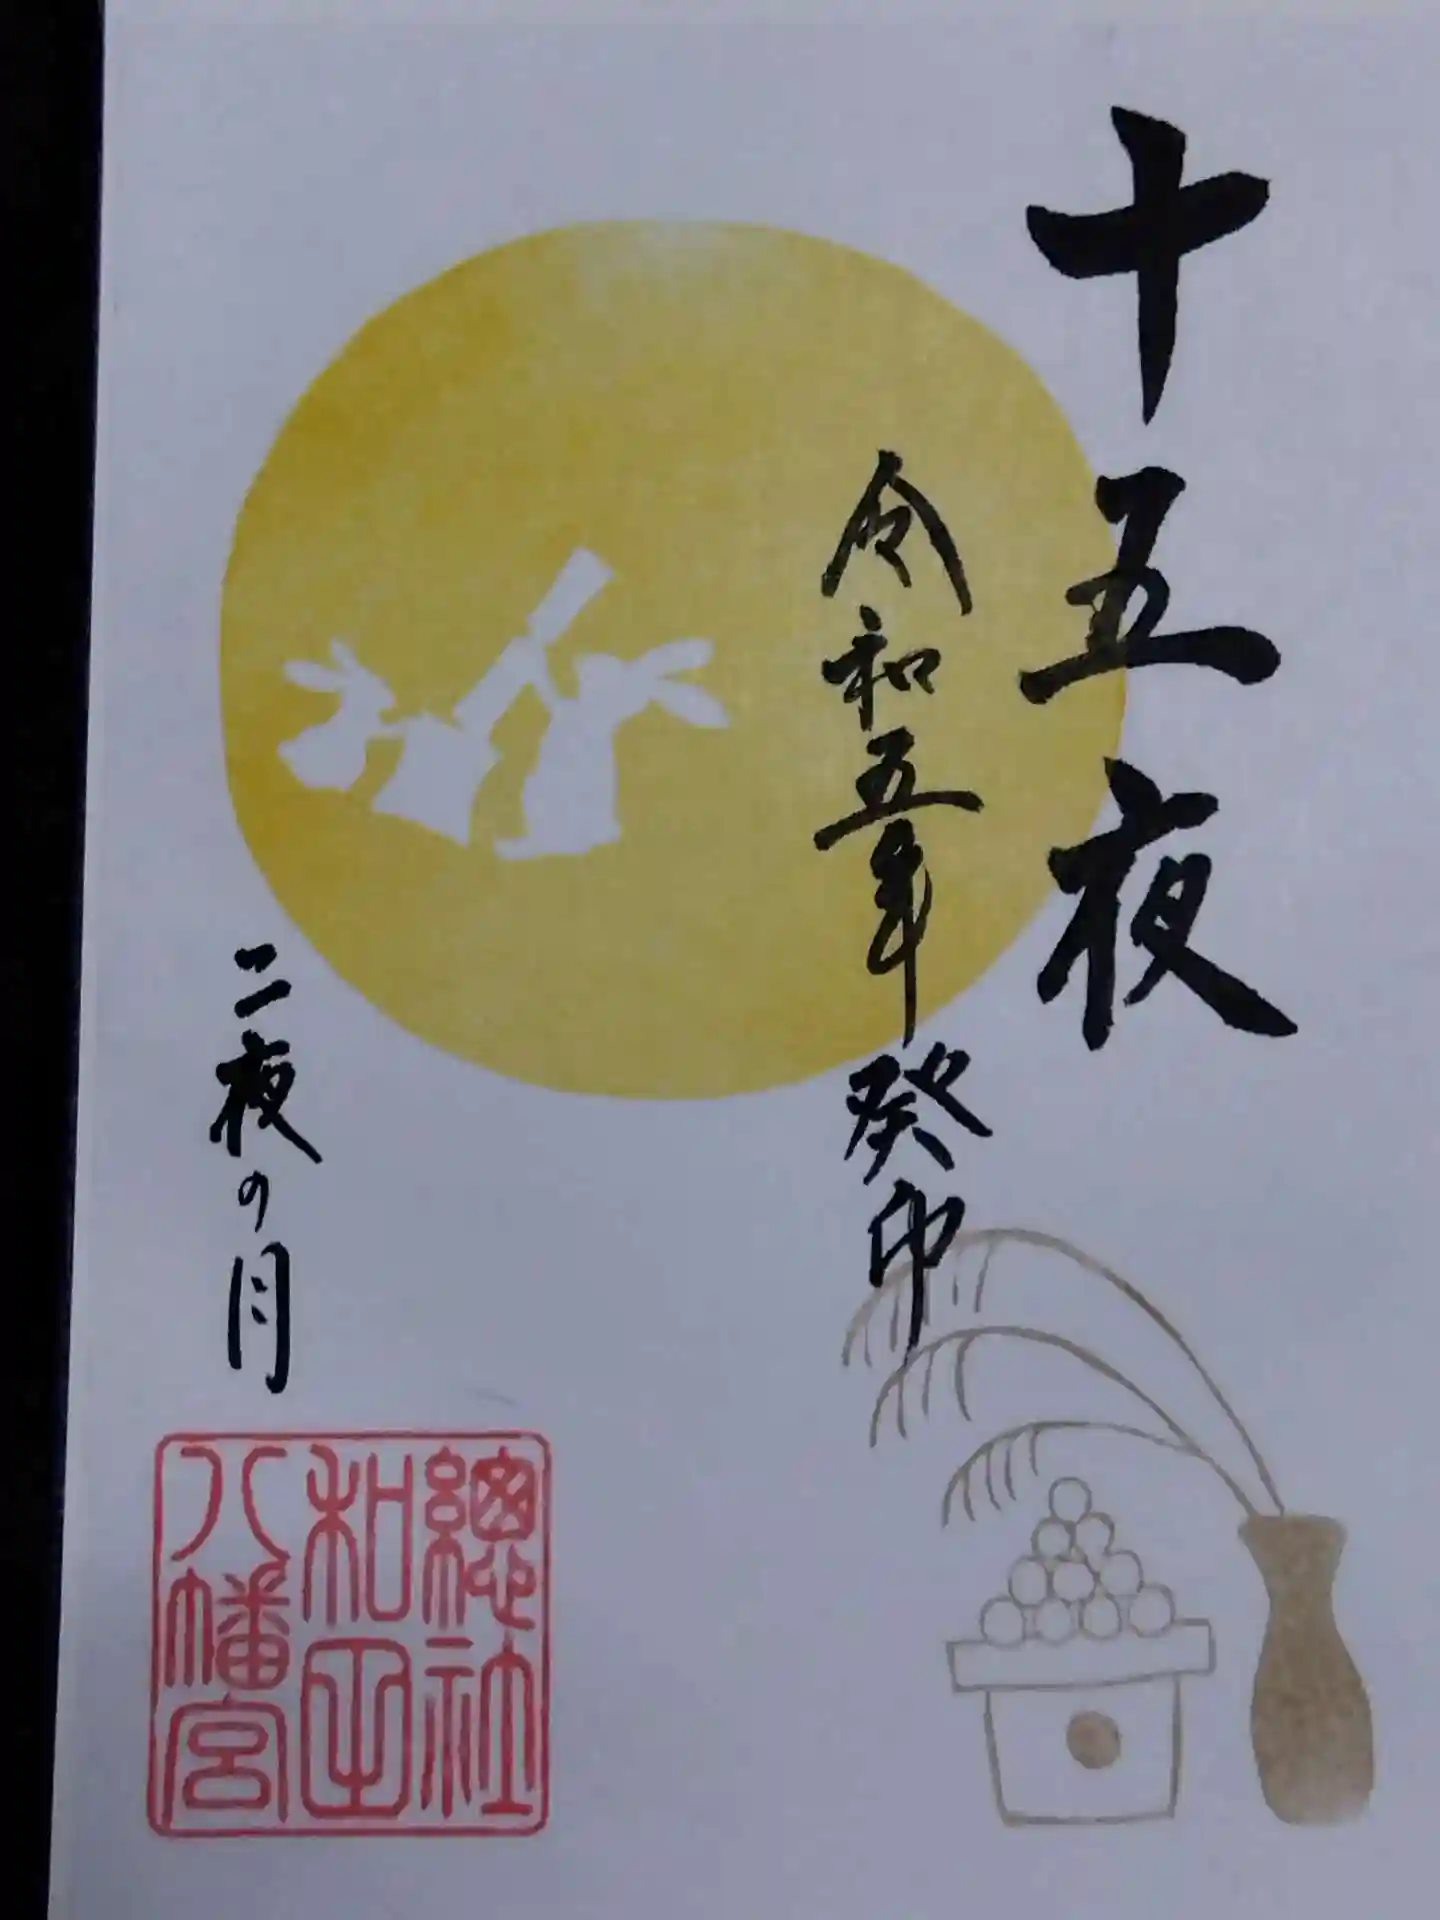 十五夜
令和五年癸卯
二夜の月
總社
和田
八幡宮